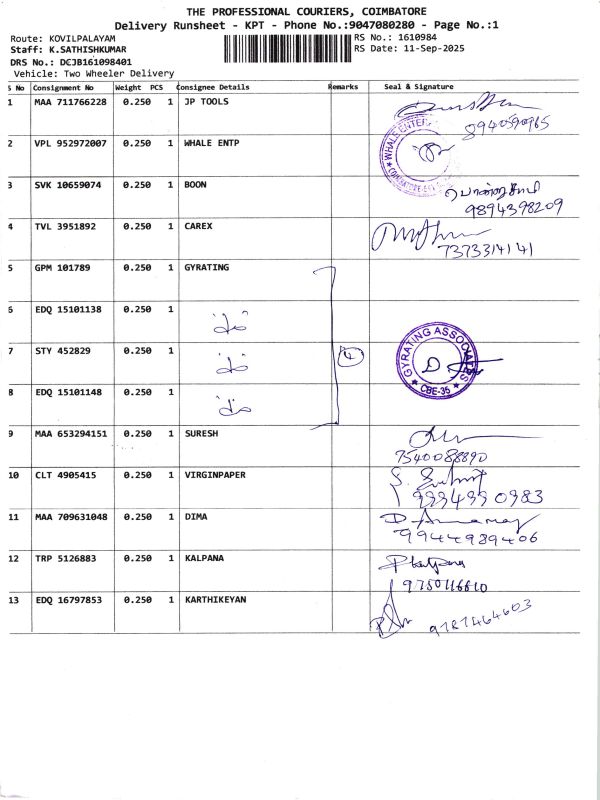 THE PROFESSIONAL COURIERS, COIMBATORE
Delivery Runsheet - KPT - Phone No.:9047080280 - Page No.:1
Route: KOVILPALAYAM
RS No.: 1610984
Staff: K.SATHISHKUMAR
RS Date: 11-Sep-2025
DRS No.: DCJB161098401
Vehicle: Two Wheeler Delivery
S No Consignment No Weight PCS Consignee Details Remarks Seal & Signature
1 MAA 711766228 0.250 1 JP TOOLS
8940590965
2 VPL 952972007 0.250 1 WHALE ENTP
WHALE ENTER
3 SVK 10659074 0.250 1 BOON
9894398209
4 TVL 3951892 0.250 1 CAREX
7373314141
5 GPM 101789 0.250 1 GYRATING
6 EDQ 15101138 0.250 1
7 STY 452829 0.250 1
4
GYRATING ASSOCIATES
CBE-35
8 EDQ 15101148 0.250 1
9 MAA 653294151 0.250 1 SURESH
7540088890
10 CLT 4905415 0.250 1 VIRGINPAPER
9994990983
11 MAA 709631048 0.250 1 DIMA
9944989406
12 TRP 5126883 0.250 1 KALPANA
PKalpana
9750116610
13 EDQ 16797853 0.250 1 KARTHIKEYAN
9787464603